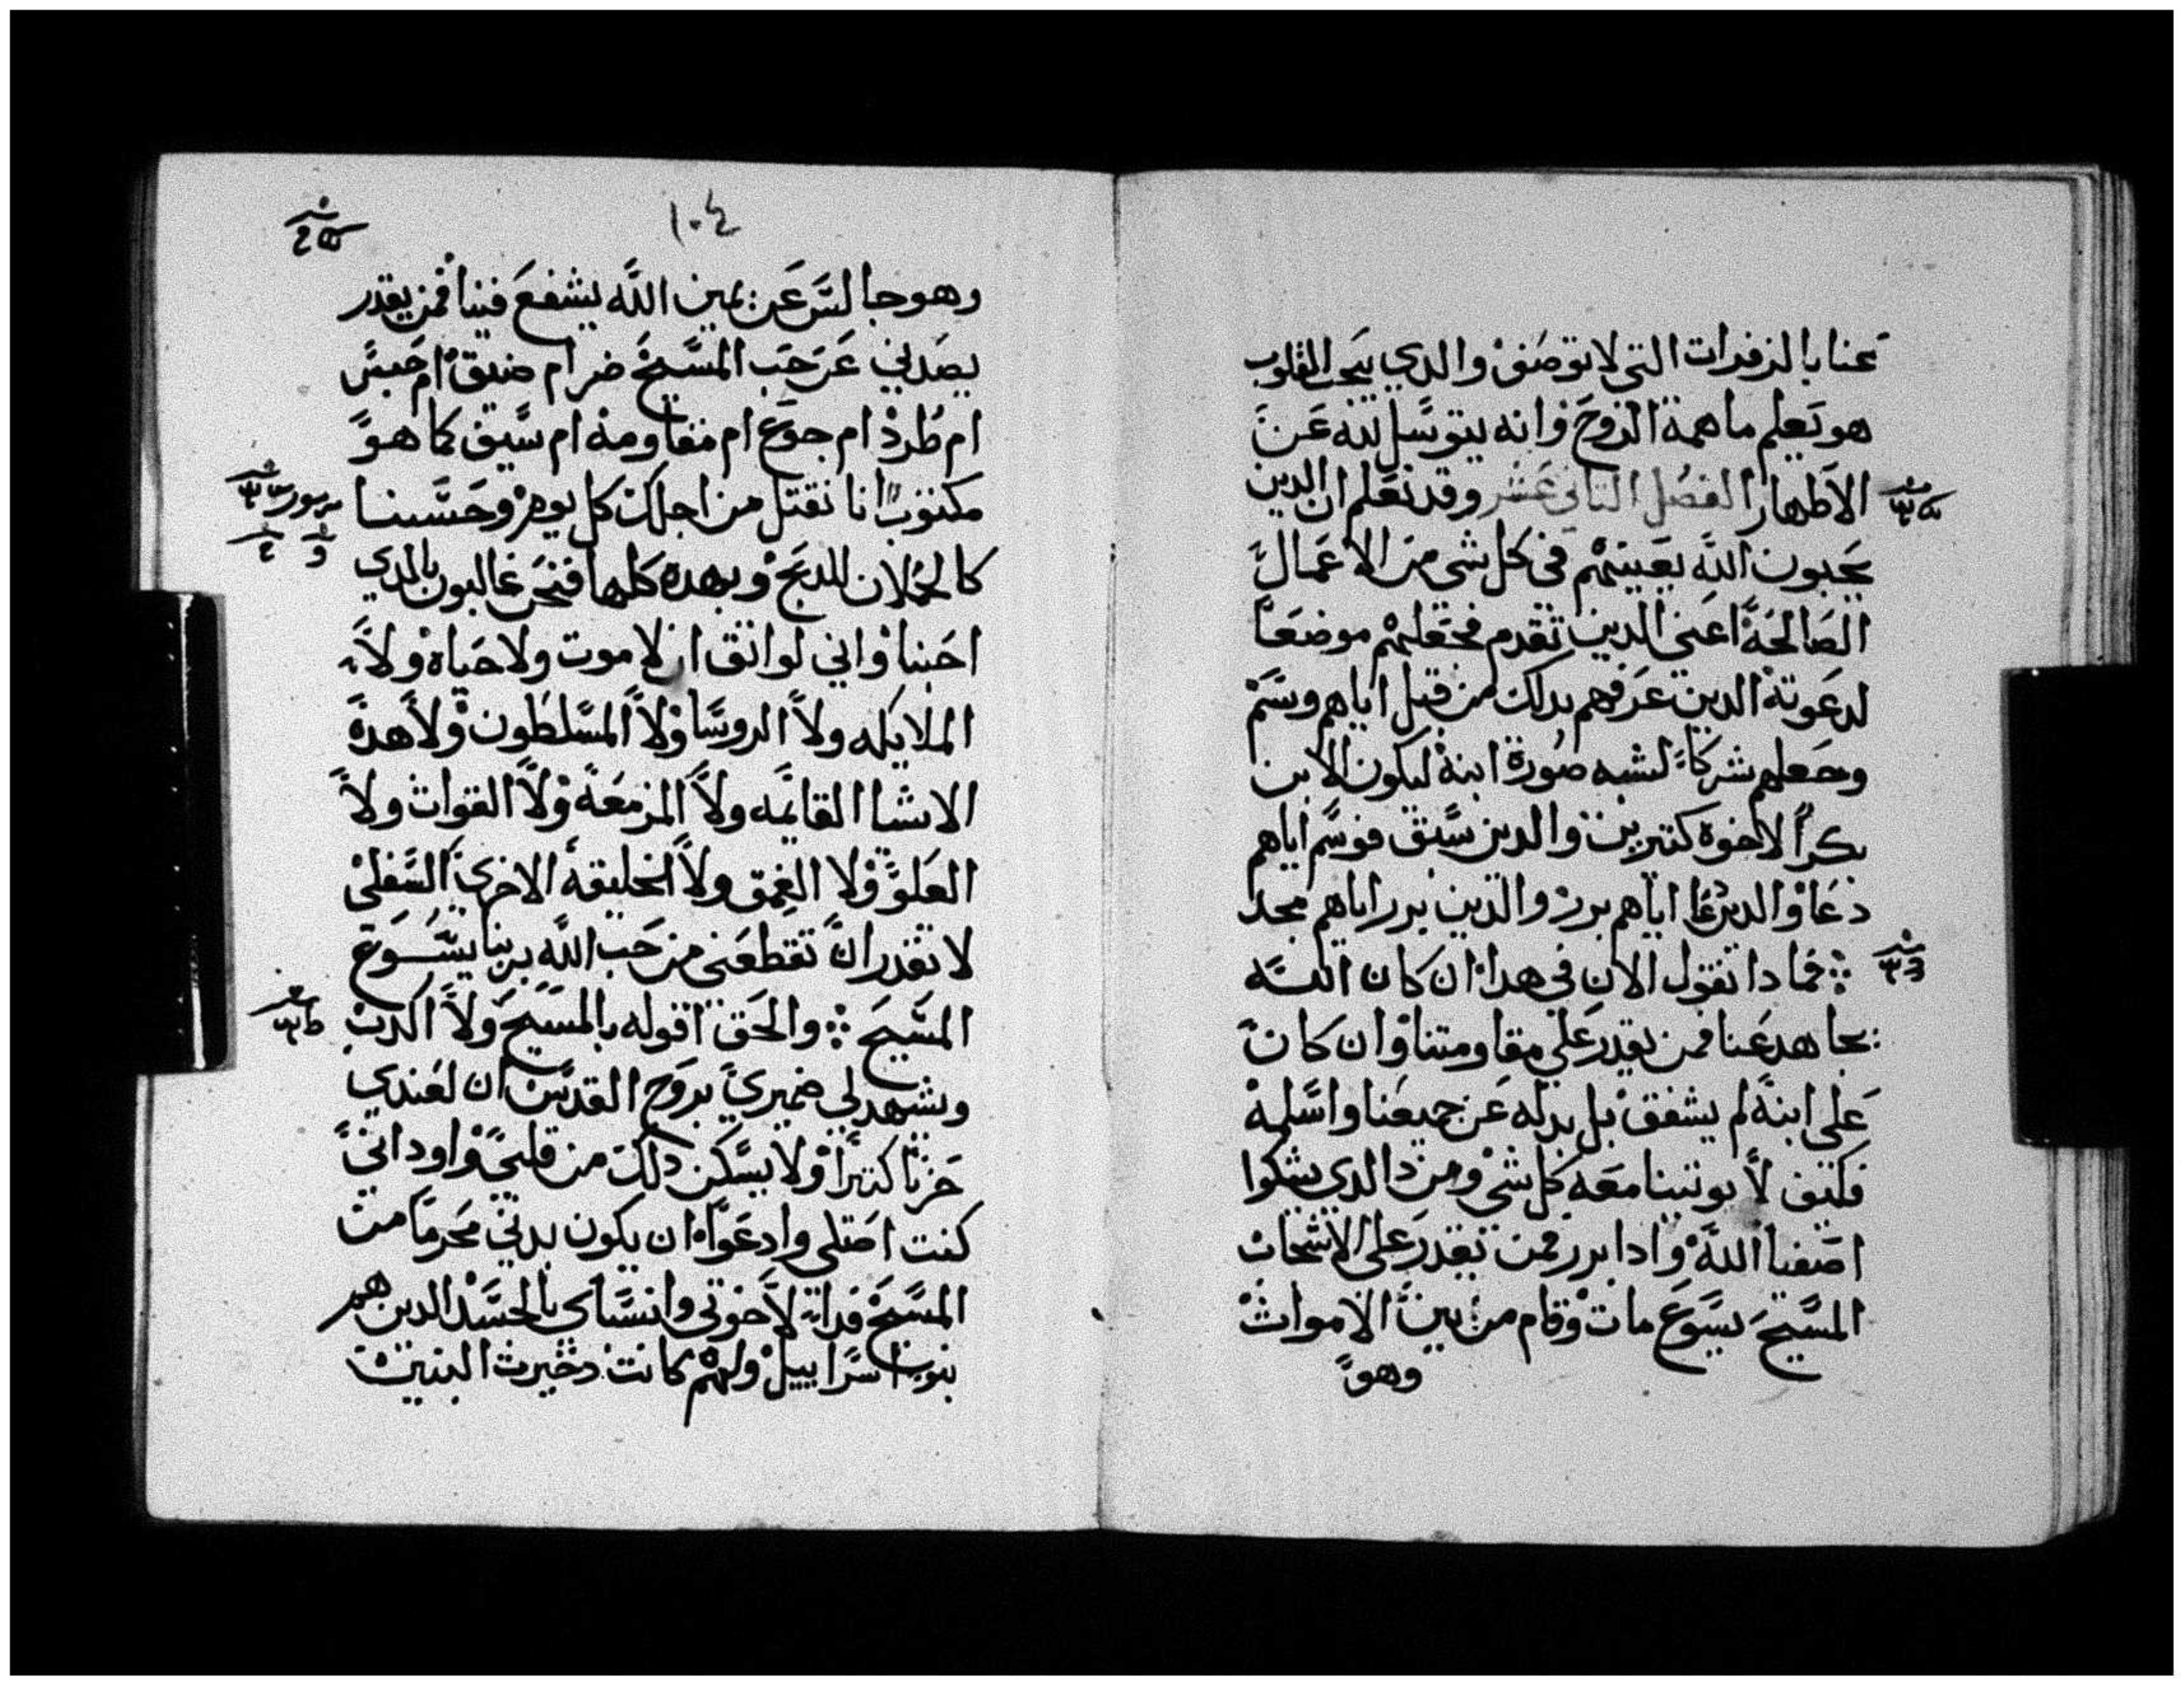 عنا بالزفرات التي لا توصف والدي يبحت القلوب
هو يعلم ما همة الروح وانه يتوسل لله عن
الاطهار الفصل التاني عشر وقد نعلم ان الدين
يحبون الله يعينهم في كل شي من الاعمال
الصالحة اعني الدين تقدم فجعلهم موضعا
لدعوته الدين عرفهم بدلك من قبل اياهم وسم
وجعلهم شركا لشبه صورة ابنه ليكون الابن
بكرا لاخوة كتيرين والدين سبق فوسم اياهم
دعا والدين دعا اياهم برر والدين برر اياهم مجد
فمادا نقول الان في هدا ان كان الله
يجاهد عنا فمن يقدر علي مقاومتنا وان كان
علي ابنه لم يشفق بل بدله عن جميعنا واسلمه
فكيف لا يوتينا معه كل شي ومن دا الدي يشكوا
اصفيا الله وادا برر فمن يقدر علي الاشجاب
المسيح يسوع مات وقام من بين الاموات
وهو
١٠٤
وهو جالس عن يمين الله يشفع فينا فمن يقدر
يصدني عن حب المسيح ضر ام ضيق ام حبس
ام طرد ام جوع ام مقاومه ام سيف كما هو
مكتوب انا نقتل من اجلك كل يوم وحسبنا
كالحملان للدبح وبهده كلها فنحن غالبون بالدي
احبنا واني لواتق ان لا موت ولا حياه ولا
الملايكه ولا الروسا ولا المسلطون ولا هده
الاشيا القايمه ولا المزمعة ولا القوات ولا
العلو ولا الغمق ولا الخليقة الاخري السفلي
لا تقدر ان تقطعني من حب الله بربنا يسوع
المسيح والحق اقوله بالمسيح ولا اكدب
ويشهد لي ضميري بروح القدس ان لعندي
حزنا كتيرا ولا يسكن دلك من قلبي واوداني
كنت اصلي وادعوا ان يكون بدني محرما من
المسيح فداة لاخوتي وانسباي بالجسد الدين هم
بنوا اسراييل ولهم كانت دخيرت البنين